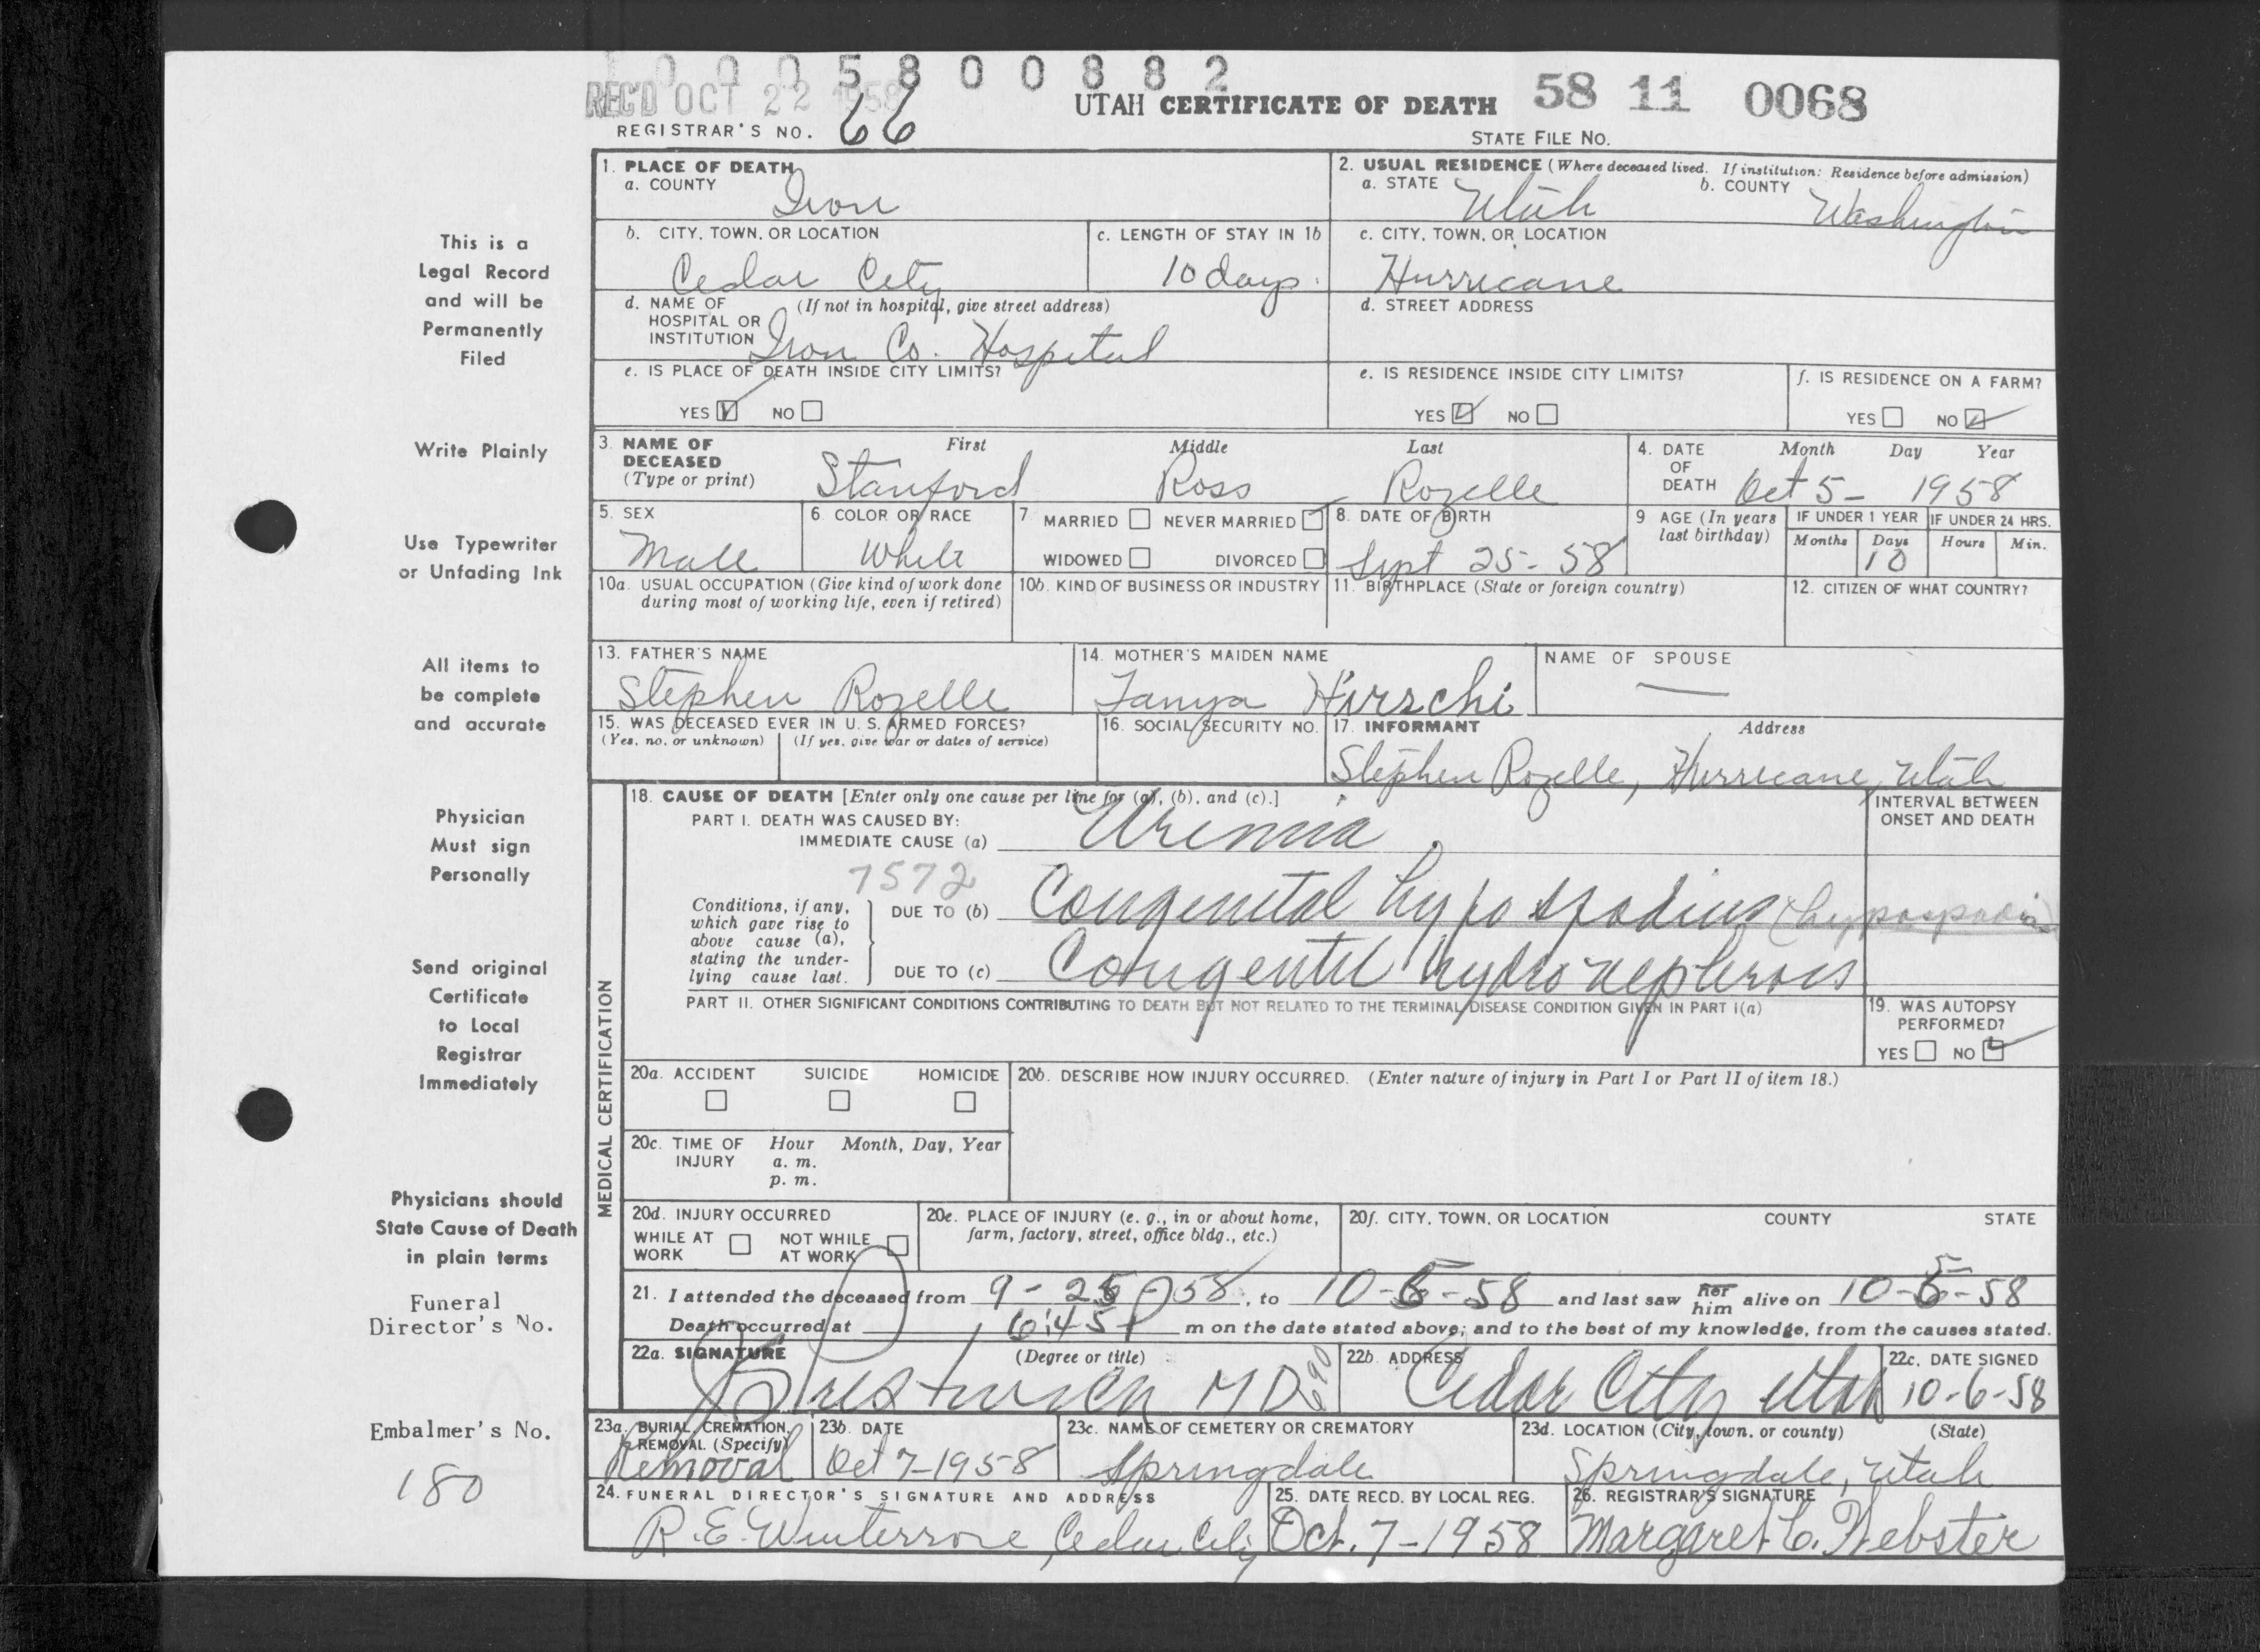 1 0 0 0 5 8 0 0 8 8 2
REC'D OCT 22 1958
UTAH CERTIFICATE OF DEATH 58 11 0068
REGISTRAR'S NO. 66
STATE FILE NO.
This is a
Legal Record
and will be
Permanently
Filed
Write Plainly
Use Typewriter
or Unfading Ink
All items to
be complete
and accurate
Physician
Must sign
Personally
Send original
Certificate
to Local
Registrar
Immediately
Physicians should
State Cause of Death
in plain terms
Funeral
Director's No.
Embalmer's No.
180
1. PLACE OF DEATH
a. COUNTY Iron
2. USUAL RESIDENCE (Where deceased lived. If institution: Residence before admission)
a. STATE Utah b. COUNTY Washington
b. CITY, TOWN, OR LOCATION Cedar City
c. LENGTH OF STAY IN 1b 10 days
c. CITY, TOWN, OR LOCATION Hurricane
d. NAME OF (If not in hospital, give street address)
HOSPITAL OR
INSTITUTION Iron Co. Hospital
d. STREET ADDRESS
e. IS PLACE OF DEATH INSIDE CITY LIMITS?
YES NO
e. IS RESIDENCE INSIDE CITY LIMITS?
YES NO
f. IS RESIDENCE ON A FARM?
YES NO
3. NAME OF First Middle Last
DECEASED
(Type or print) Stanford Ross Rozelle
4. DATE Month Day Year
OF
DEATH Oct 5- 1958
5. SEX Male
6. COLOR OR RACE White
7. MARRIED NEVER MARRIED
WIDOWED DIVORCED
8. DATE OF BIRTH Sept 25-58
9. AGE (In years last birthday)
IF UNDER 1 YEAR IF UNDER 24 HRS.
Months Days Hours Min.
10
10a. USUAL OCCUPATION (Give kind of work done
during most of working life, even if retired)
10b. KIND OF BUSINESS OR INDUSTRY
11. BIRTHPLACE (State or foreign country)
12. CITIZEN OF WHAT COUNTRY?
13. FATHER'S NAME Stephen Rozelle
14. MOTHER'S MAIDEN NAME Tanya Hirschi
NAME OF SPOUSE —
15. WAS DECEASED EVER IN U. S. ARMED FORCES?
(Yes, no, or unknown) (If yes, give war or dates of service)
16. SOCIAL SECURITY NO.
17. INFORMANT Address
Stephen Rozelle, Hurricane, Utah
MEDICAL CERTIFICATION
18. CAUSE OF DEATH [Enter only one cause per line for (a), (b), and (c).]
PART I. DEATH WAS CAUSED BY:
IMMEDIATE CAUSE (a) Uremia
INTERVAL BETWEEN
ONSET AND DEATH
7572
Conditions, if any,
which gave rise to
above cause (a),
stating the under-
lying cause last.
DUE TO (b) Congenital hypospadius (hypospadias)
DUE TO (c) Congentil hydronephrosis
PART II. OTHER SIGNIFICANT CONDITIONS CONTRIBUTING TO DEATH BUT NOT RELATED TO THE TERMINAL DISEASE CONDITION GIVEN IN PART I(a)
19. WAS AUTOPSY
PERFORMED?
YES NO
20a. ACCIDENT SUICIDE HOMICIDE
20b. DESCRIBE HOW INJURY OCCURRED. (Enter nature of injury in Part I or Part II of item 18.)
20c. TIME OF Hour Month, Day, Year
INJURY a. m.
p. m.
20d. INJURY OCCURRED
WHILE AT WORK NOT WHILE AT WORK
20e. PLACE OF INJURY (e. g., in or about home,
farm, factory, street, office bldg., etc.)
20f. CITY, TOWN, OR LOCATION COUNTY STATE
21. I attended the deceased from 9-25-58, to 10-5-58 and last saw her him alive on 10-5-58
Death occurred at 6:45 P m on the date stated above; and to the best of my knowledge, from the causes stated.
22a. SIGNATURE (Degree or title)
MD
22b. ADDRESS Cedar City Utah
22c. DATE SIGNED 10-6-58
23a. BURIAL, CREMATION,
REMOVAL (Specify) Removal
23b. DATE Oct 7-1958
23c. NAME OF CEMETERY OR CREMATORY Springdale
23d. LOCATION (City, town, or county) (State)
Springdale, Utah
24. FUNERAL DIRECTOR'S SIGNATURE AND ADDRESS
R. E. Winterrose, Cedar City
25. DATE RECD. BY LOCAL REG. Oct. 7-1958
26. REGISTRAR'S SIGNATURE
Margaret C. Webster